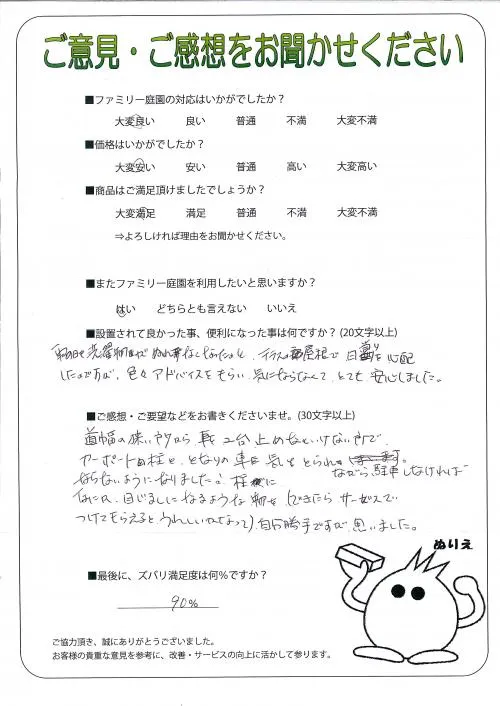 ご意見・ご感想をお聞かせください
■ファミリー庭園の対応はいかがでしたか？
大変良い 良い 普通 不満 大変不満
■価格はいかがでしたか？
大変安い 安い 普通 高い 大変高い
■商品はご満足頂けましたでしょうか？
大変満足 満足 普通 不満 大変不満
⇒よろしければ理由をお聞かせください。
■またファミリー庭園を利用したいと思いますか？
はい どちらとも言えない いいえ
■設置されて良かった事、便利になった事は何ですか？(20文字以上)
洗濯物が テラスの 屋根で 日 を心配
したのですが、色々アドバイスをもらい、気にならなくて、とても安心しました。
■ご感想・ご要望などをお書きくださいませ。(30文字以上)
道幅の狭い所から車2台止めないといけない所で、
カーポートの柱と、となりの車に気をとられ
ながら駐車しなければ
ならないようになりました。柱
なにか、目じるしになるような物を(できたらサービスで
つけてもらえるとうれしいかなって)自分勝手ですが思いました。
ぬりえ
■最後に、ズバリ満足度は何%ですか？
90%
ご協力頂き、誠にありがとうございました。
お客様の貴重な意見を参考に、改善・サービスの向上に活かして参ります。